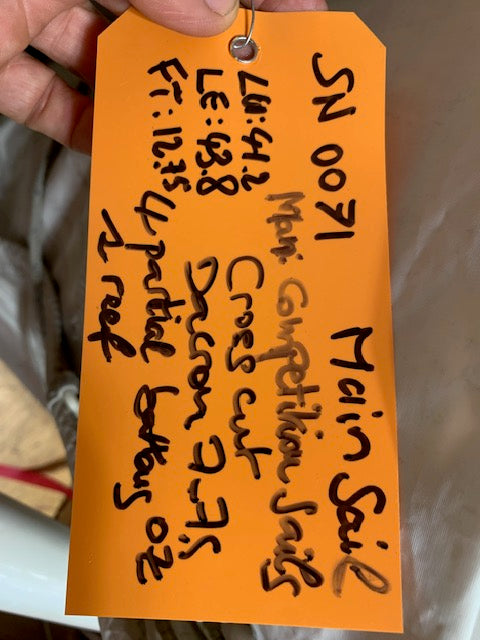 SN 0071 Main Sail
LU: 41.2
LE: 43.8
FT: 12.75
Competition Sails
Cross cut
Dacron 7-7.5 OZ
4 partial battens
1 reef